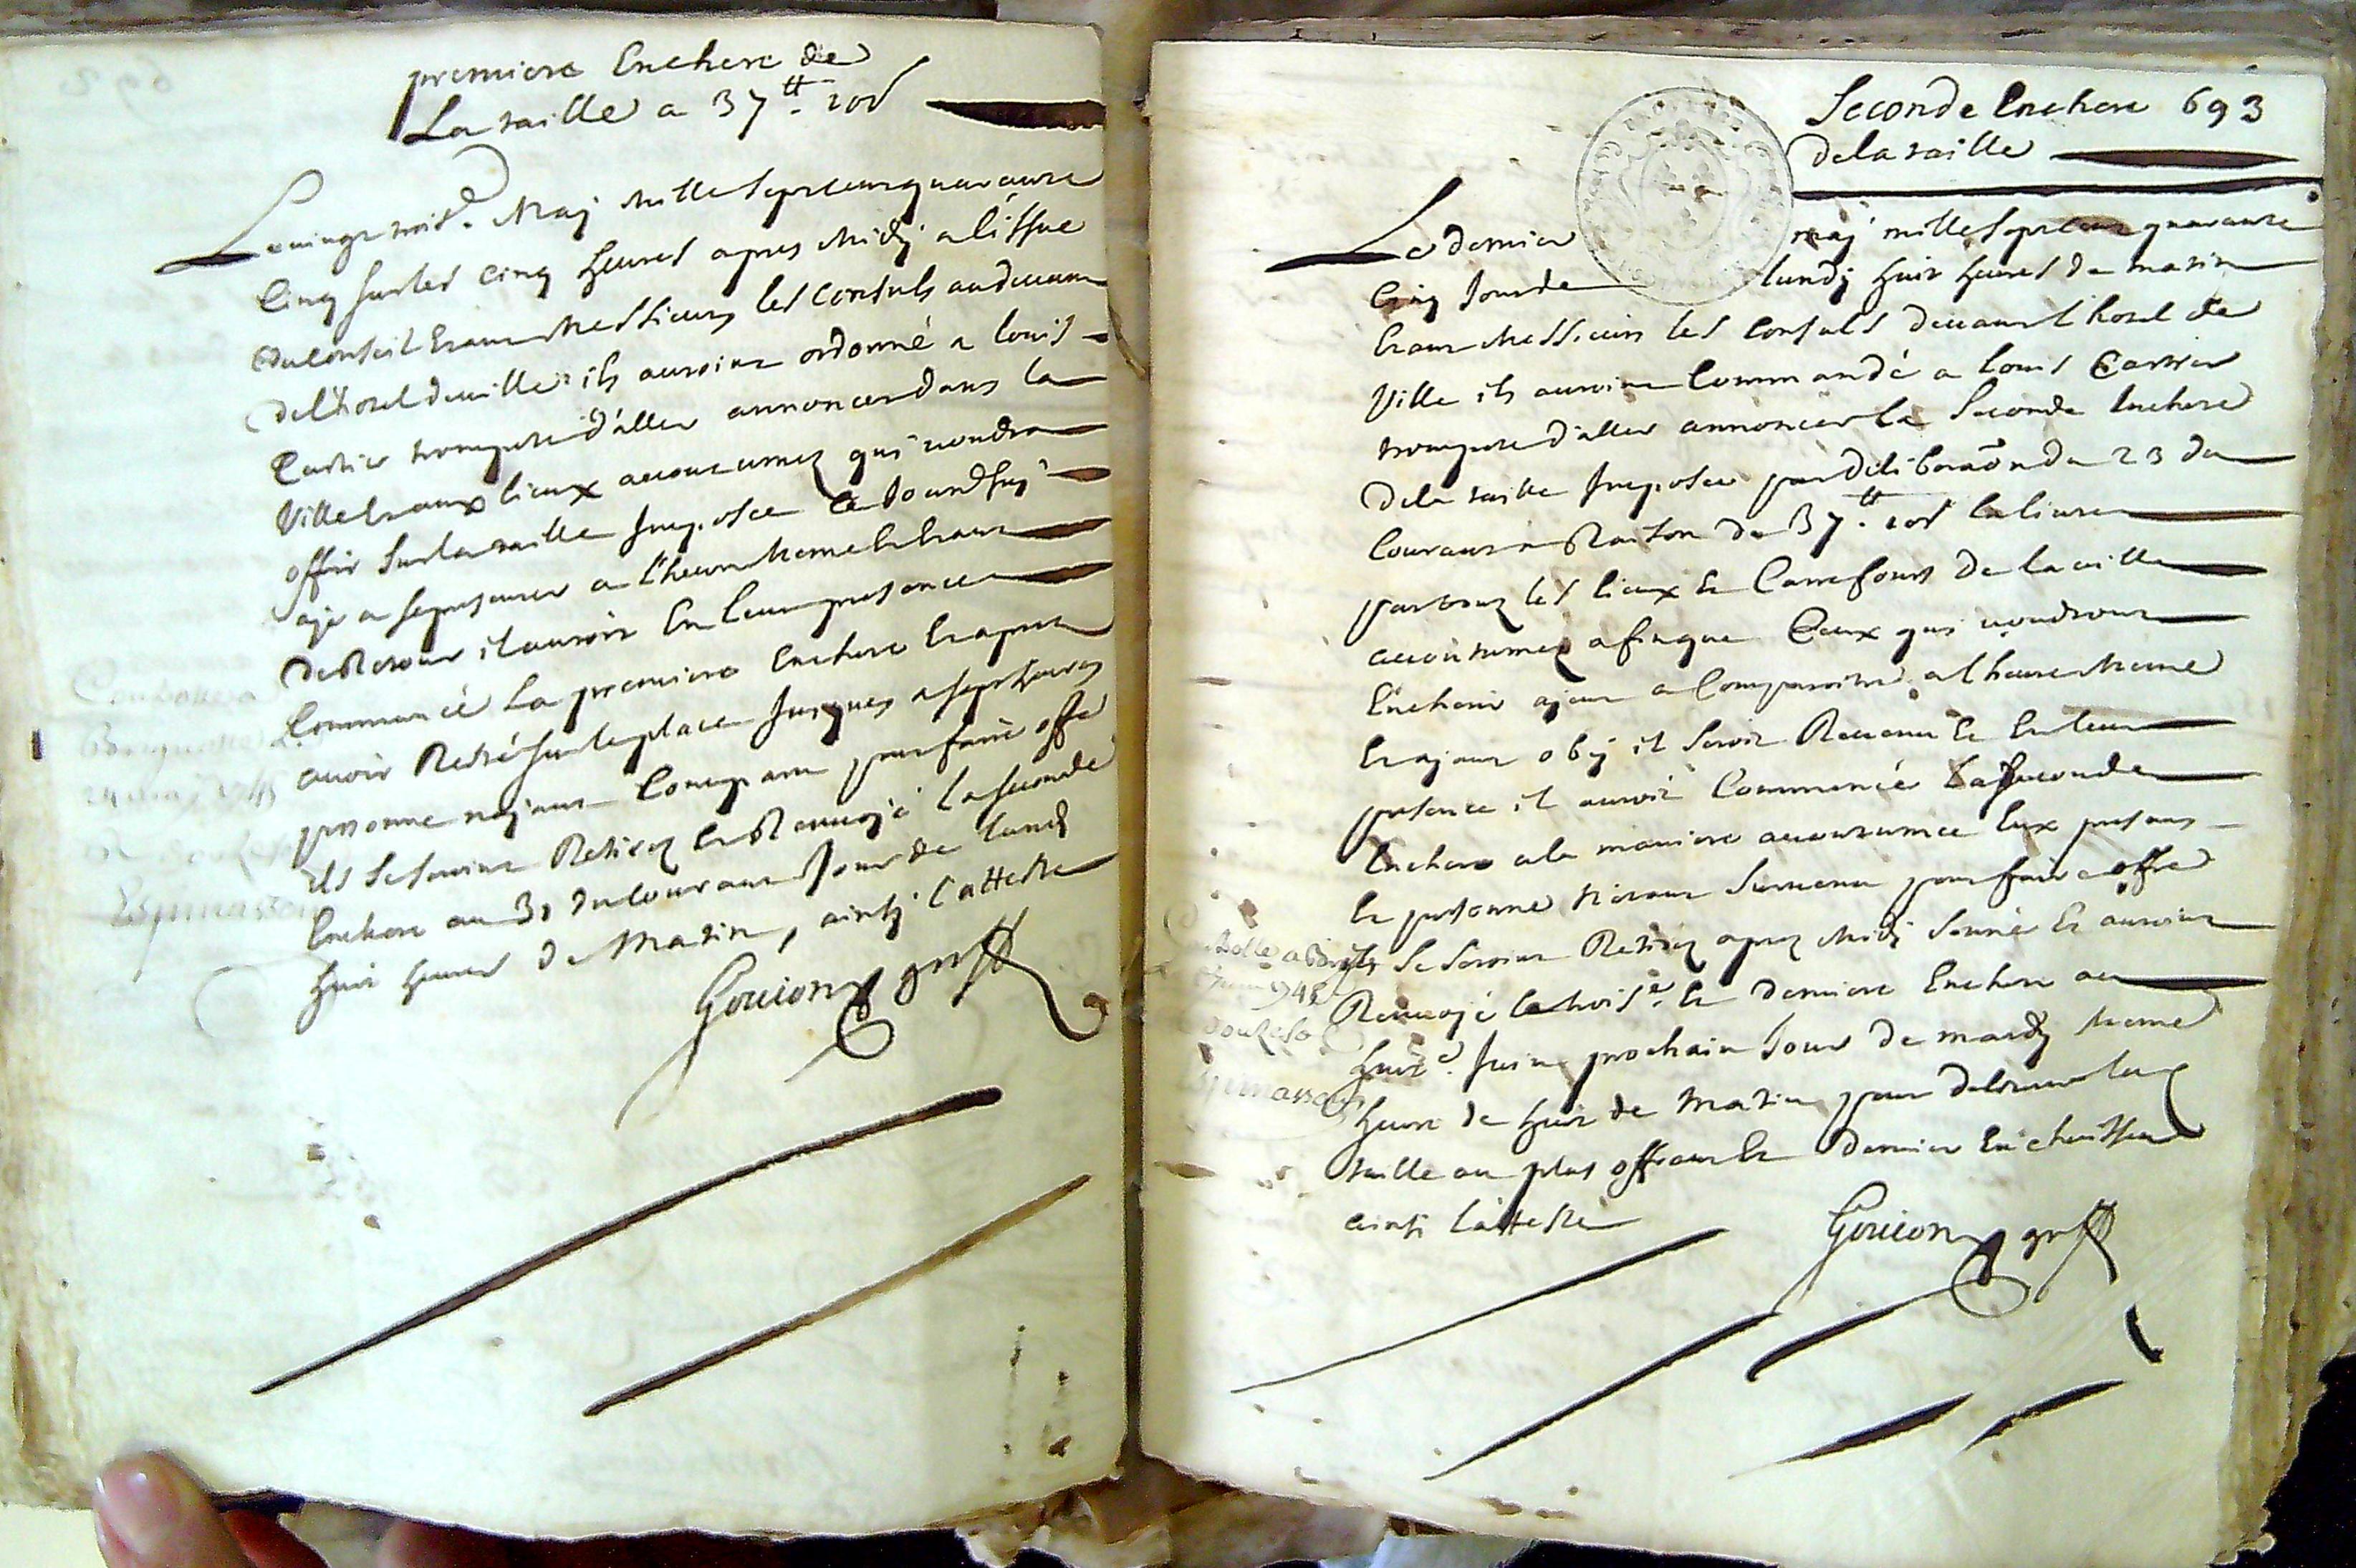 premiere Enchere de
La taille a 37tt. 10s
Le vingt trois.e May mille sept cens quarante
Cinq sur les cinq heures apres midy a l'issue
du conseil Etant Messieurs les Consuls au devant
de l'hotel de ville ils auroint ordonné a louis
Cartier trompete d'aller annoncer dans la
Ville Et aux lieux accoutumez qui voudra
offrir sur la taille Imposée Ce Jourdhuy
aye a se presenter a l'heure meme Et Etant
de Retour il auroit En leur presence
Commencé La premiere Enchere Et apres
avoir Resté sur la place Jusques a sept heures
personne n'ayant Comparu pour faire offre
ils se seroint Retirez Et Renvoyé la seconde
Enchere au 31 du Courant Jour de lundy
huit heures du Matin, ainsy l'atteste
Gouion greff
Controllé a
24 may 1745
Espinasson
Seconde Enchere 693
de la taille
Le dernier may mille sept cens quarante
Cinq Jour de lundy huit heures du matin
Etant Messieurs les Consuls devant l'hotel de
Ville ils auroint Commandé a louis Cartier
trompete d'aller annoncer la Seconde Enchere
de la taille Imposée par deliberaõn du 23 du
Courant a Raison de 37tt. 10s la livre
par tous les lieux Et Carrefours de la ville
accoutumez afin que Ceux qui voudront
Encherir ayent a Comparoitre a l'heure meme
Et ayant obéy il seroit Revenu Et En leur
presence il auroit Commencée La seconde
Enchere a la maniere accoutumée Eux presens
Et personne n'etant survenu pour faire offre
ils se seroint Retirez apres midy sonné Et auroint
Renvoyé la trois.e Et derniere Enchere au
huit.e Juin prochain Jour de mardy meme
heure de huit du Matin pour delivrer la
taille au plus offrant Et dernier Encherisseur
ainsi l'atteste
Gouion greff
1745
Espinasson